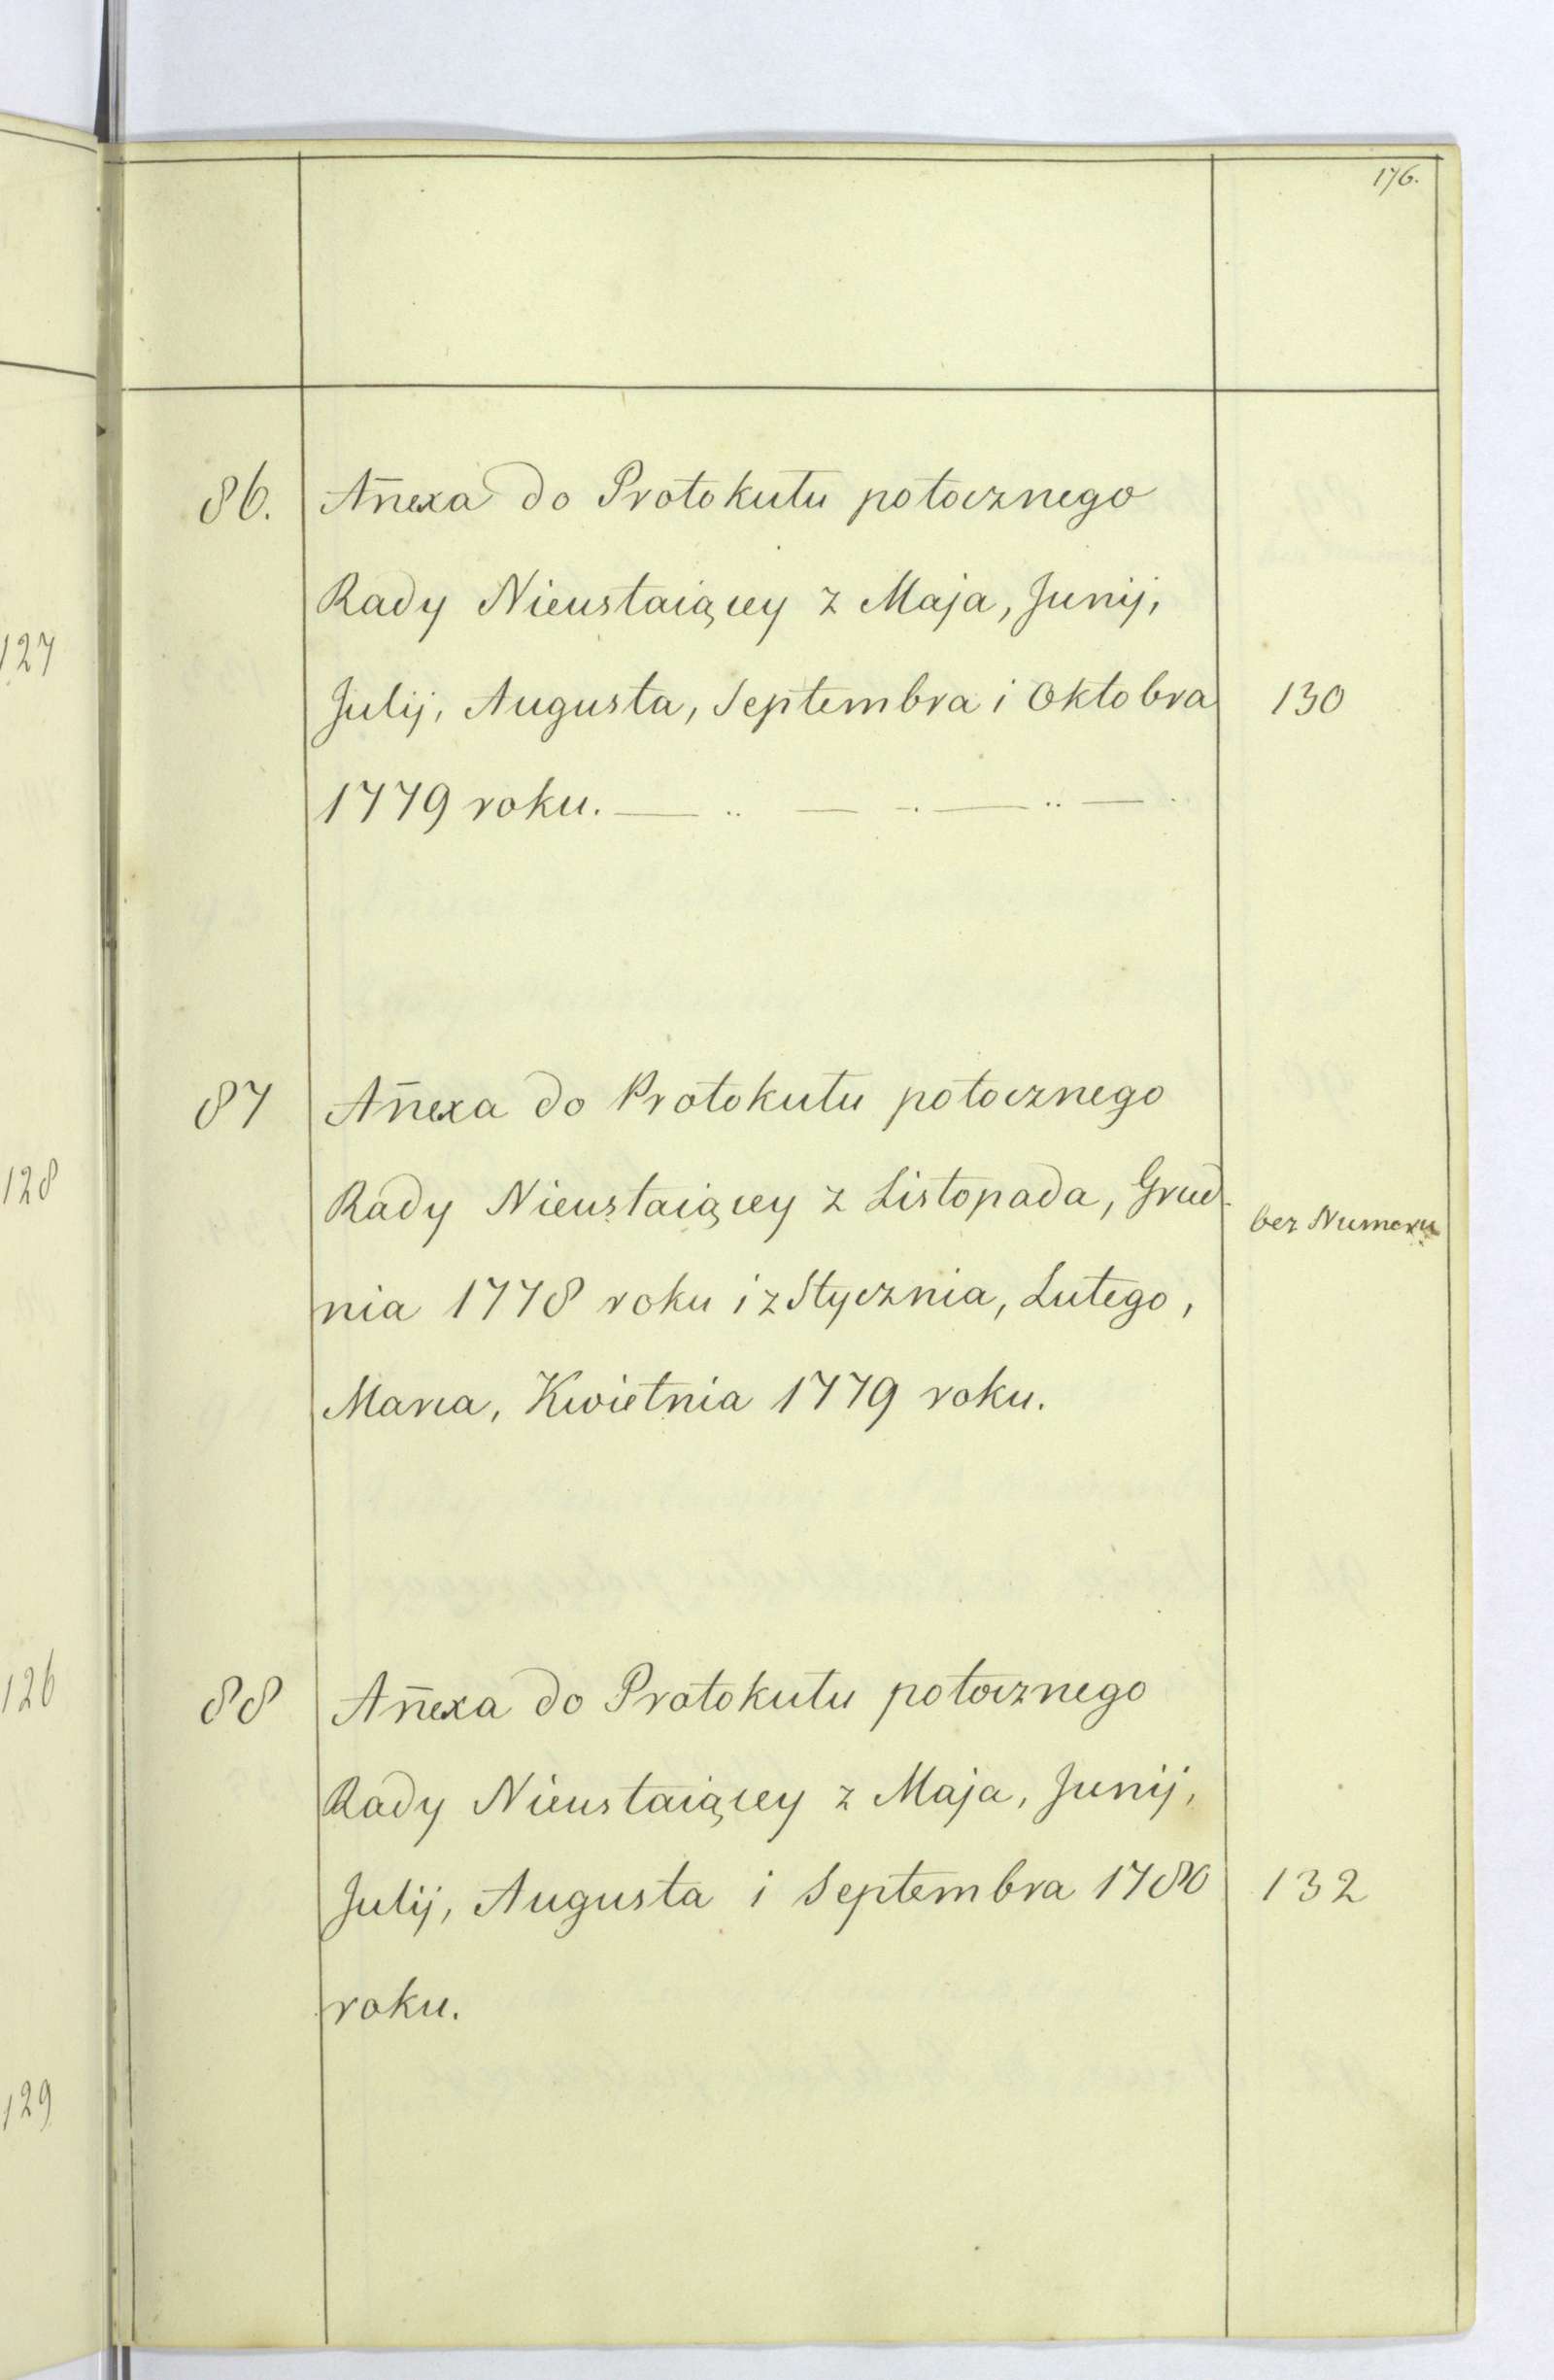 176.
127
128
126
129
86. Añexa do Protokułu potocznego
Rady Nieustaiącey z Maja, Junij,
Julij, Augusta, Septembra i Oktobra 130
1779 roku. — .. — -. — .. — .
87 Añexa do Protokułu potocznego
Rady Nieustaiącey z Listopada, Grud- bez Numeru
nia 1778 roku i z Stycznia, Lutego,
Marca, Kwietnia 1779 roku.
88 Añexa do Protokułu potocznego
Rady Nieustaiącey z Maja, Junij,
Julij, Augusta i Septembra 1780 132
roku.